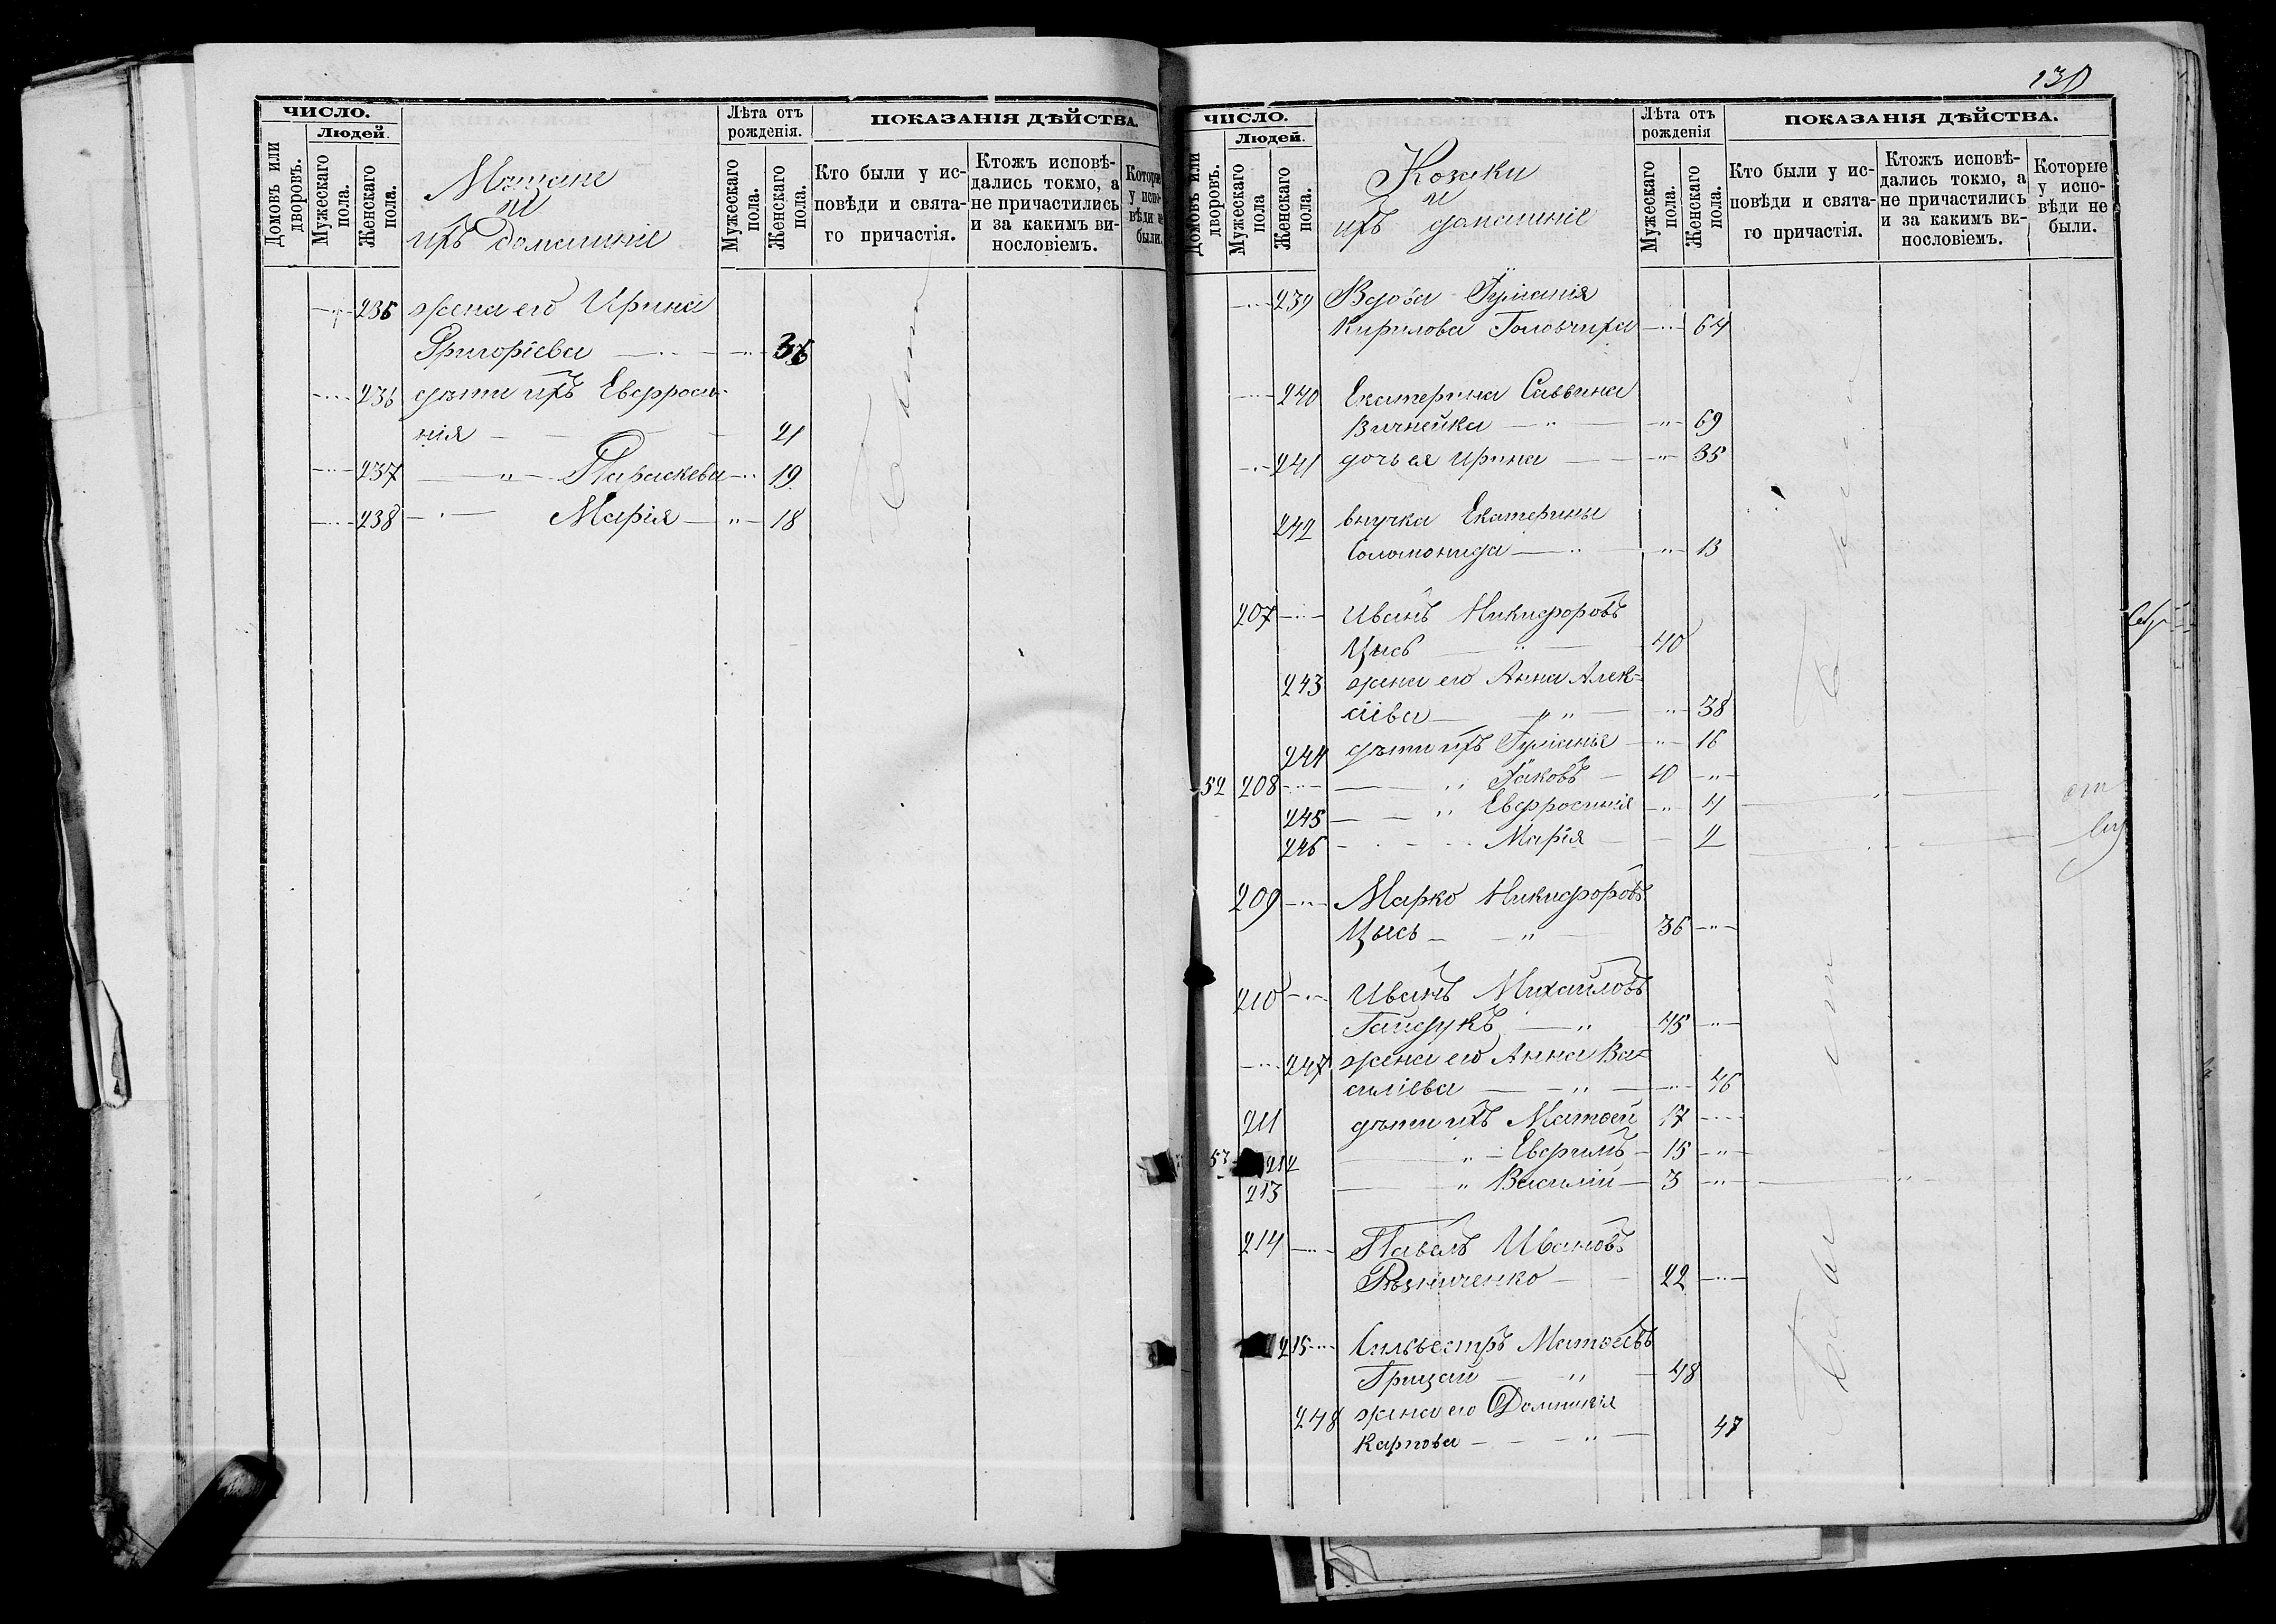 ЧИСЛО.
Домовъ или дворовъ.
Людей.
Мужескаго пола.
Женскаго пола.
Мѣщане
и
ихъ домашніе
Лѣта отъ рожденія.
Мужескаго пола.
Женскаго пола.
ПОКАЗАНІЯ ДѢЙСТВА.
Кто были у ис-
повѣди и свята-
го причастія.
Ктожъ исповѣ-
дались токмо, а
не причастились
и за какимъ ви-
нословіемъ.
Которые
у испо-
вѣди не
были.
235 жена его Ирина
Григоріева 36
236 дѣти ихъ Евфроси-
нія 21
237 " Параскева 19
238 " Марія " 18
ЧИСЛО.
Домовъ или дворовъ.
Людей.
Мужескаго пола
Женскаго пола.
Козаки
и
ихъ домашніе
Лѣта отъ рожденія
Мужескаго пола.
Женскаго пола.
ПОКАЗАНІЯ ДѢЙСТВА.
Кто были у ис-
повѣди и свята-
го причастія.
Ктожъ исповѣ-
дались токмо, а
не причастились
и за какимъ ви-
нословіемъ.
Которые
у испо-
вѣди не
были.
239 Вдова Іуліанія
Кирилова 64
240 Екатерина Саввина
69
241 дочь ея Ирина " 35
242 внучка Екатерины
Соломонида " 13
207 Иванъ Никифоровъ
Цысь " 40
243 жена его Анна Алек-
сіева " 38
244 дѣти ихъ Іуліанія " 16
52 208 " Іаковъ 10 "
245 " Евфросинія " 4
246 " Марія 2
209 Марко Никифоровъ
Цысь " 36 "
210 Иванъ Михайловъ
Гайдукъ " 45 "
247 жена его Анна Ва-
силіева " 46
211 дѣти ихъ Матѳей 17
53 212 " Евфимъ 15 "
213 " Василій 3 "
214 Павелъ Ивановъ
Рѣзниченко 22 "
215 Сильвестръ Матѳеевъ
Грицай " 48
248 жена его Домникія
Карпова " 47